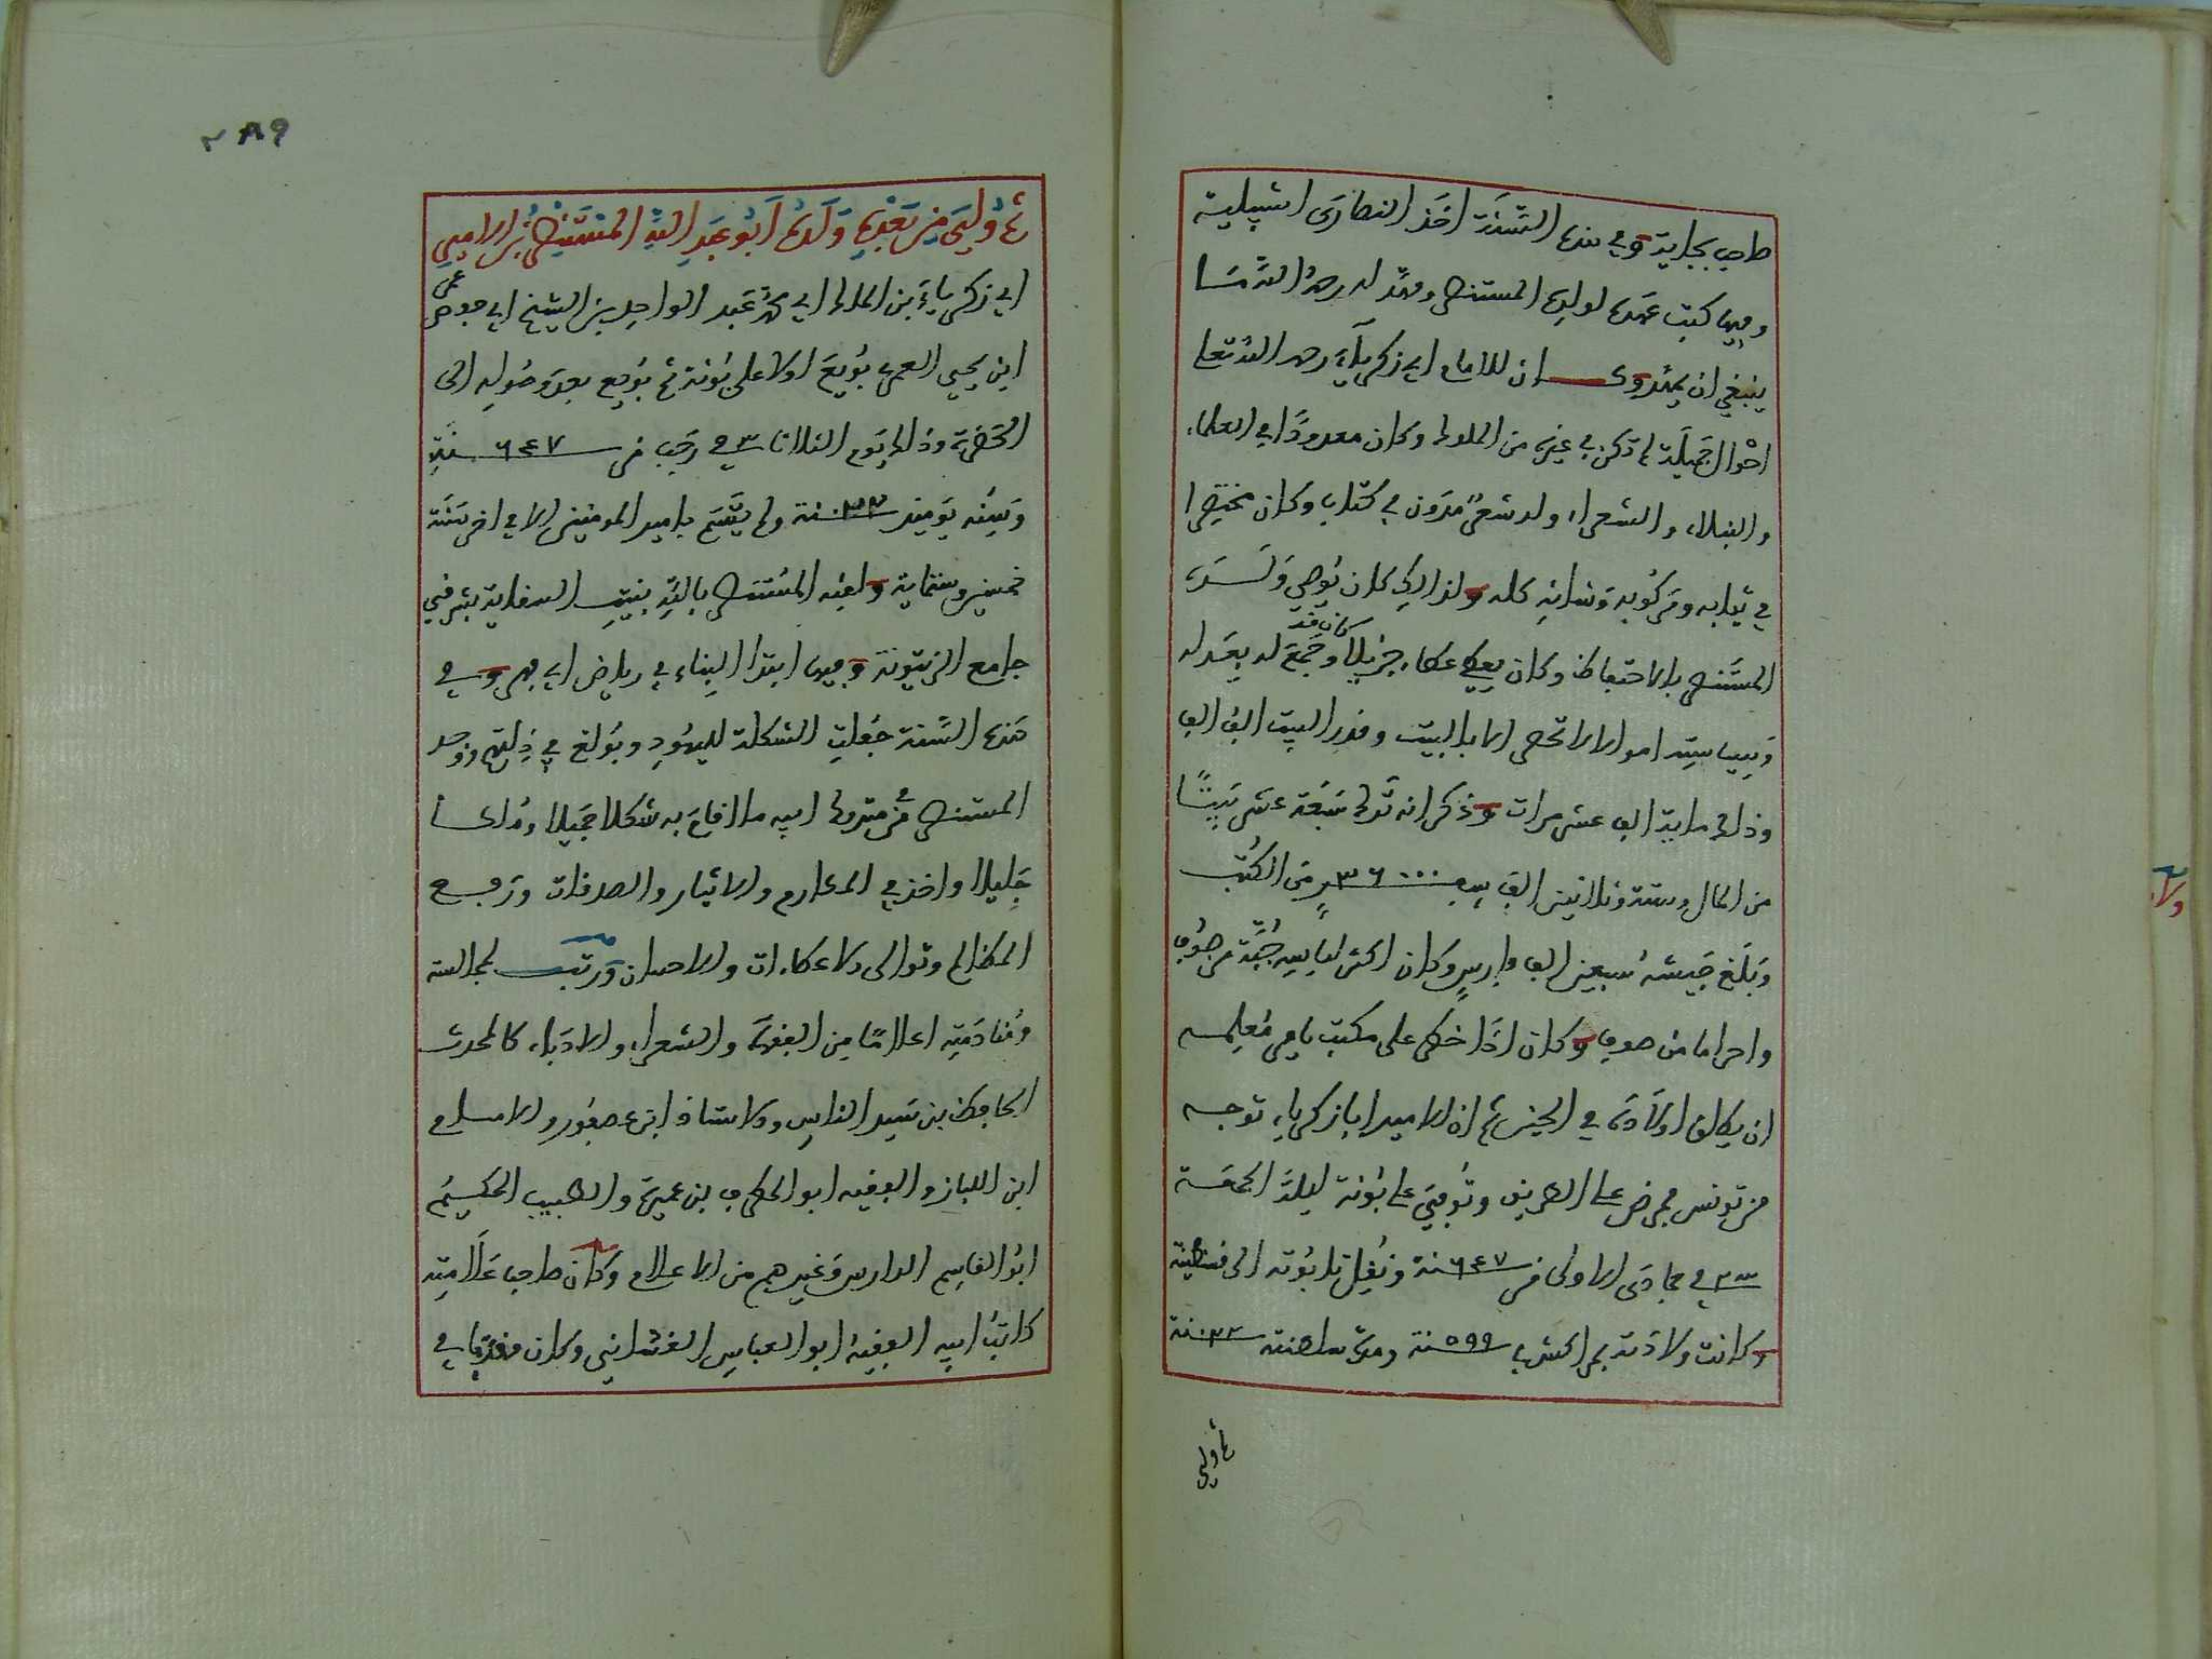 صاحب بجاية وفي هذه السَّنَة اخَذ النصارَى اشبيلية
وفيها كتب عهده لولده المستنصر ومهَّد له رحمه الله مَا
ينبغي ان يمهد وكـــان للامام ابي زكرياءَ رحمه الله تعا
احْوال جَميلَة لم تكن في غيره من الملوك وكان معدودًا في العلماء
والنبلاء والشعراء وله شعرٌ مُدَون في كتاب وكان مختصرا
في ثيابه ومركُوبه وَشانِه كله ولذالِك كان يُوصي وَلَــدَه
المستَنصر بالاحتفاظ وكان يعطي عطاء جزيلا وجَمَع كان قد له بعَدله
وَسِياسَتِه اموالا لا تحصى الا بالبيت وقدر البيت الف الف
وذلك ماية الف عشر مرات وذكر انه تَرك سَبعَة عشر بَيتًا
من المال وستة وثلاثين الف سِفـ ٣٦٠٠٠ ـرٍ مِن الكُتب
وَبَلَغ جَيشهُ سبعين الف فارسٍ وكان اكثر لباسِه جُبَّة من صُوف
واحراما من صوف وكان اذَا خطر على مكتب يامر مُعلِمــه
ان يطلق اولاَدَه في الحين ثم ان الامير ابا زكرياء توجه
من تونس فمرض على الطريق وتُوفيَ على بُونة ليلةَ الجمعَــة
في جمادَى الاولى من ٦٤٧ـنة ونُقِل تابُوته الى قسنطينة
وكانت ولادَته بمراكش ٥٩٩ـنة ومدة سلطنته ـنة
ثم ولي
٢٨٩
ثم وُليَ مِن بَعْدِهِ وَلَدُهُ اَبُو عَبدِ اللهِ المُستَنصِرُ بن الاميرِ
ابي زكرياءَ بن الملك ابي محمد عَبد الواحِد بن الشيخ ابي حفص عمر
ابن يحيى العمري بُويعَ اولا على بُونة ثم بُويع بعد وصُوله الى
الحَضرة وذلك يَوم الثلاثا ٣ في رجب من ٦٤٧ سنَةِ
وَسِنه يَوميذ ـنة ولم يَتَسَم بامير المومنين الا في اخر سَنَة
خمسين وستماية ولقبه المُستَنصر باللهِ بنيتِ السقاية بشرقي
جامع الزيتونة وفيها ابتدا البِناء في رياض ابي فهر وفي
هَذه السَّنة جُعلتِ الشكلة لليهُودِ وبُولغ في ذِلتهم ووجد
المستنصر في من متروك ابيه ما اقامَ به شكلا جَميلا ومُلكــا
جَلِيلا واخذ في المكارم والايثار والصدقات ورَفــع
المظالم وتوالى الاعطاءات والاحسان ورتب لمجالسته
ومُنادَمَتِه اعلامًا مِن الفقهَاء والشعراء والادَباء كالمحدث
الحافظ بن سَيد الناسِ والاستاذ ابن عصفُور والامــام
ابن اللباز والفقيه ابو المطرف بن عميرة والطبيب الحكيــم
ابُو القاسِم الدارس وَغيرهم من الاعلام وَكان صاحب عَلاَمتِه
كاتبُ ابيه الفقيهُ ابو العباس الغسانِي وكان مقدَّما في